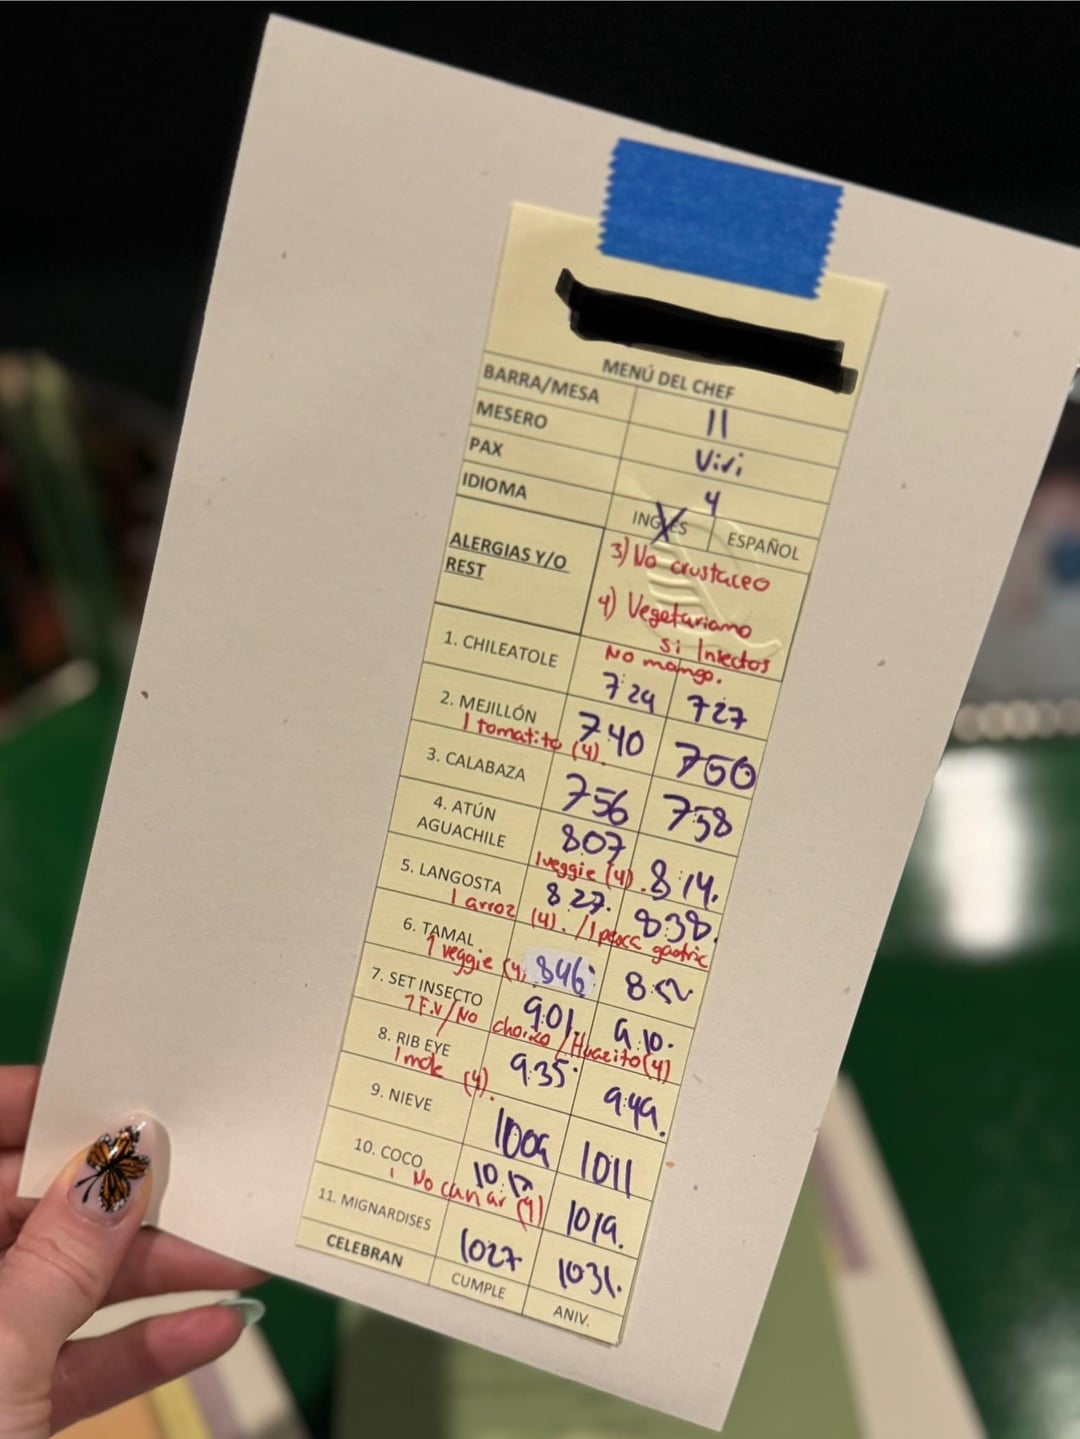 MENÚ DEL CHEF
BARRA/MESA 11
MESERO Vivi
PAX 4
IDIOMA INGLES X ESPAÑOL
ALERGIAS Y/O REST
3) No crustaceo
4) Vegetariano
si Insectos
No mango.
1. CHILEATOLE 7:24 727
2. MEJILLÓN 740 750
1 tomatito (4).
3. CALABAZA 756 758
4. ATÚN AGUACHILE 807 8:14.
1 veggie (4).
5. LANGOSTA 827. 838.
1 arroz (4). / 1
6. TAMAL 846. 8:52
1 veggie (4)
7. SET INSECTO 901. 9:10.
1 F.V/No chorizo / (4)
8. RIB EYE 9:35. 9:49.
1 mole (4).
9. NIEVE 1009 1011
10. COCO 10:17 1019.
1 No (4)
11. MIGNARDISES 1027 1031.
CELEBRAN CUMPLE ANIV.